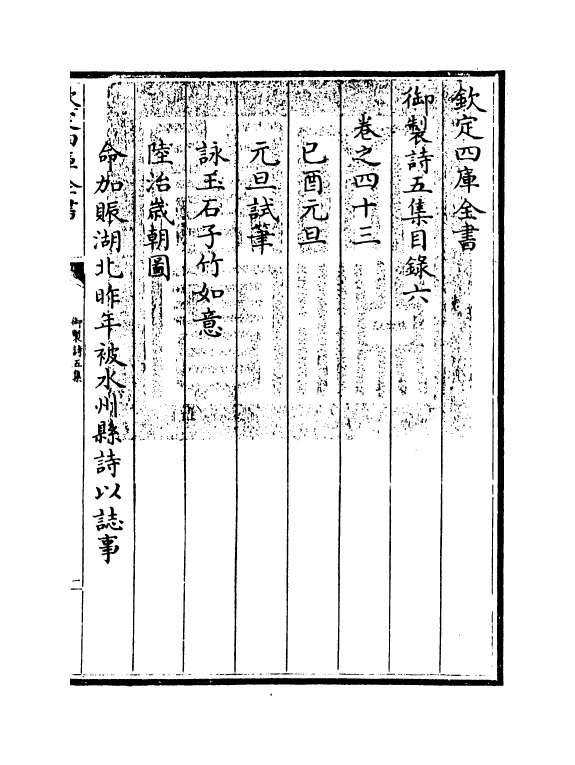 欽定四庫全書
御製詩五集目録六
卷之四十三
己酉元旦
元旦試筆
詠玉石子竹如意
陸治歲朝圖
命加賑湖北昨年被水州縣詩以誌事
欽定四庫全書
御製詩五集